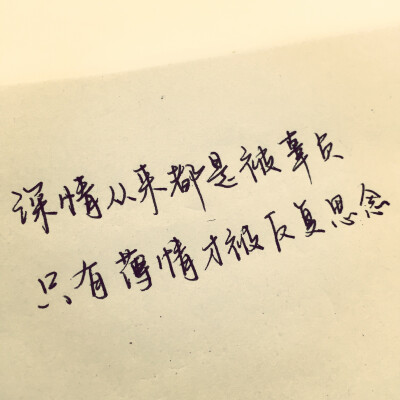 深情从来都是被辜负
只有薄情才被反复思念